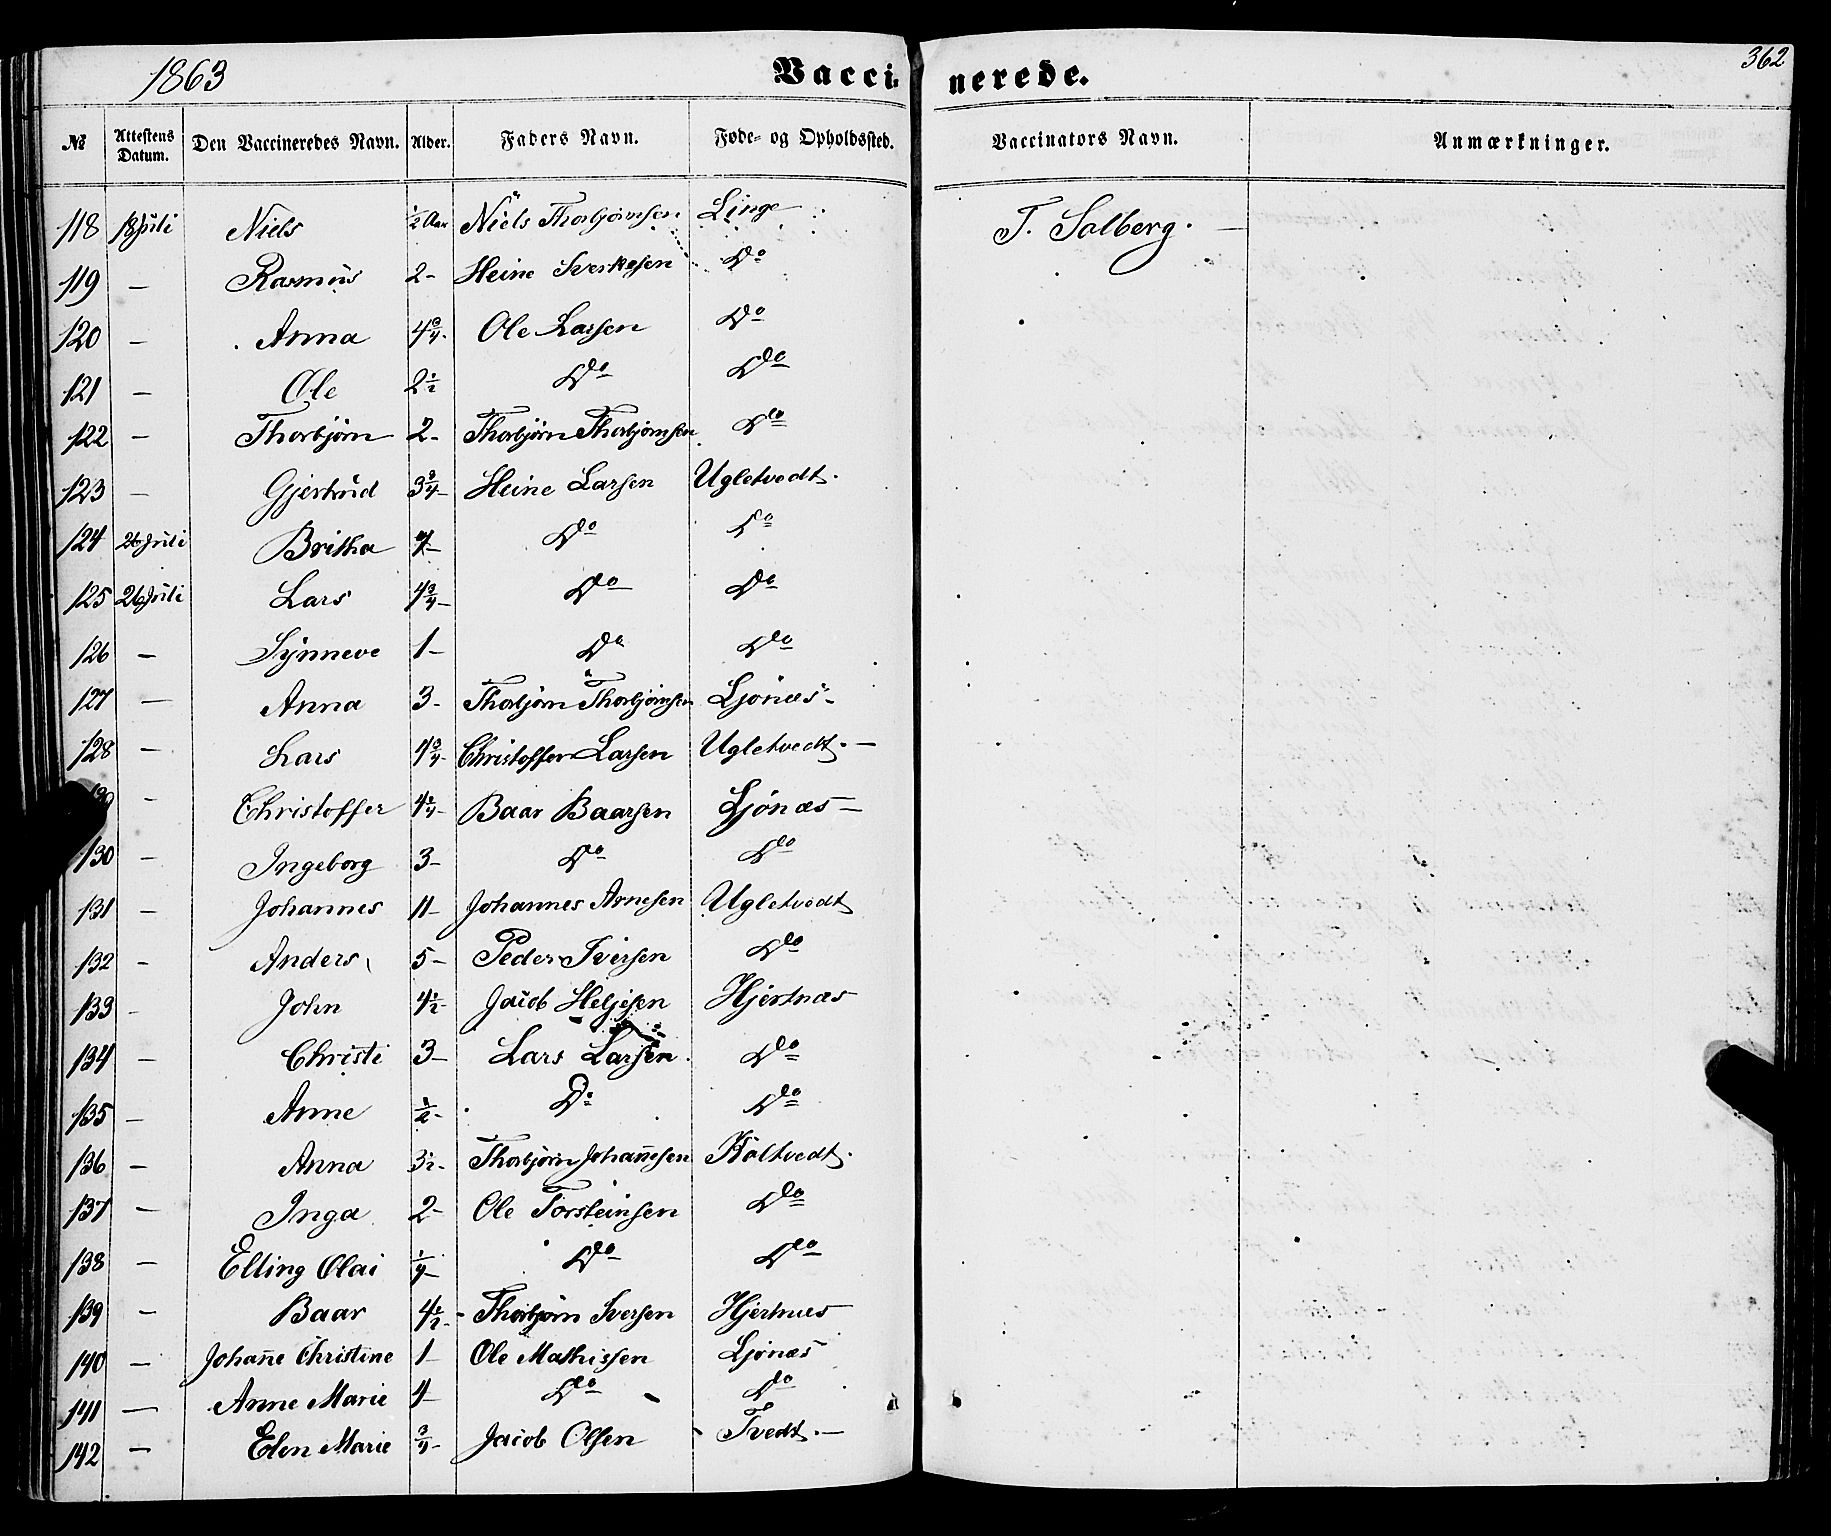 1863 Vaccinerede. 362
№ Attestens Datum. Den Vaccineredes Navn. Alder. Faders Navn. Føde- og Opholdssted. Vaccinators Navn. Anmærkninger.
118 18 Juli Niels ½ Aar Niels Thorbjørnsen Linge T. Solberg. —
119 — Rasmus 2 - Heine Sverkesen Do
120 — Anna 4¾ - Ole Larsen Do
121 — Ole 2½ Do Do
122 — Thorbjørn 2 - Thorbjørn Thorbjørnsen Do
123 — Gjertrud 3¾ - Heine Larsen Ugletvedt.
124 26 Juli Britha 7 - Do Do
125 26 Juli Lars 4¾ - Do Do
126 — Synneve 1 - Do Do
127 — Anna 3 - Thorbjørn Thorbjørnsen Ljønæs -
128 — Lars 4¾ - Christoffer Larsen Ugletvedt. —
— Christoffer 4¼ - Baar Baarsen Ljønæs —
130 — Ingeborg 3 - Do Do
131 — Johannes 11 - Johannes Arnesen Ugletvedt
132 — Anders 5 - Peder Iversen Do
133 - John 4½ - Jacob Heljesen Hjertnæs
134 — Christi 3 - Lars Larsen Do
135 — Anne ½ - Do Do
136 — Anna 3½ - Thorbjørn Johan̄esen Koltvedt.
137 — Inga 2 - Ole Torsteinsen Do
138 — Elling Olai ¼ - Do Do
139 — Baar 4½ - Thorbjørn Iversen Hjertnæs
140 — Johan̄e Christine 1 - Ole Mathissen Ljønæs
141 — Anne Marie 4 - Do Do
142 — Elen Marie ¾ - Jacob Olsen Tvedt. —